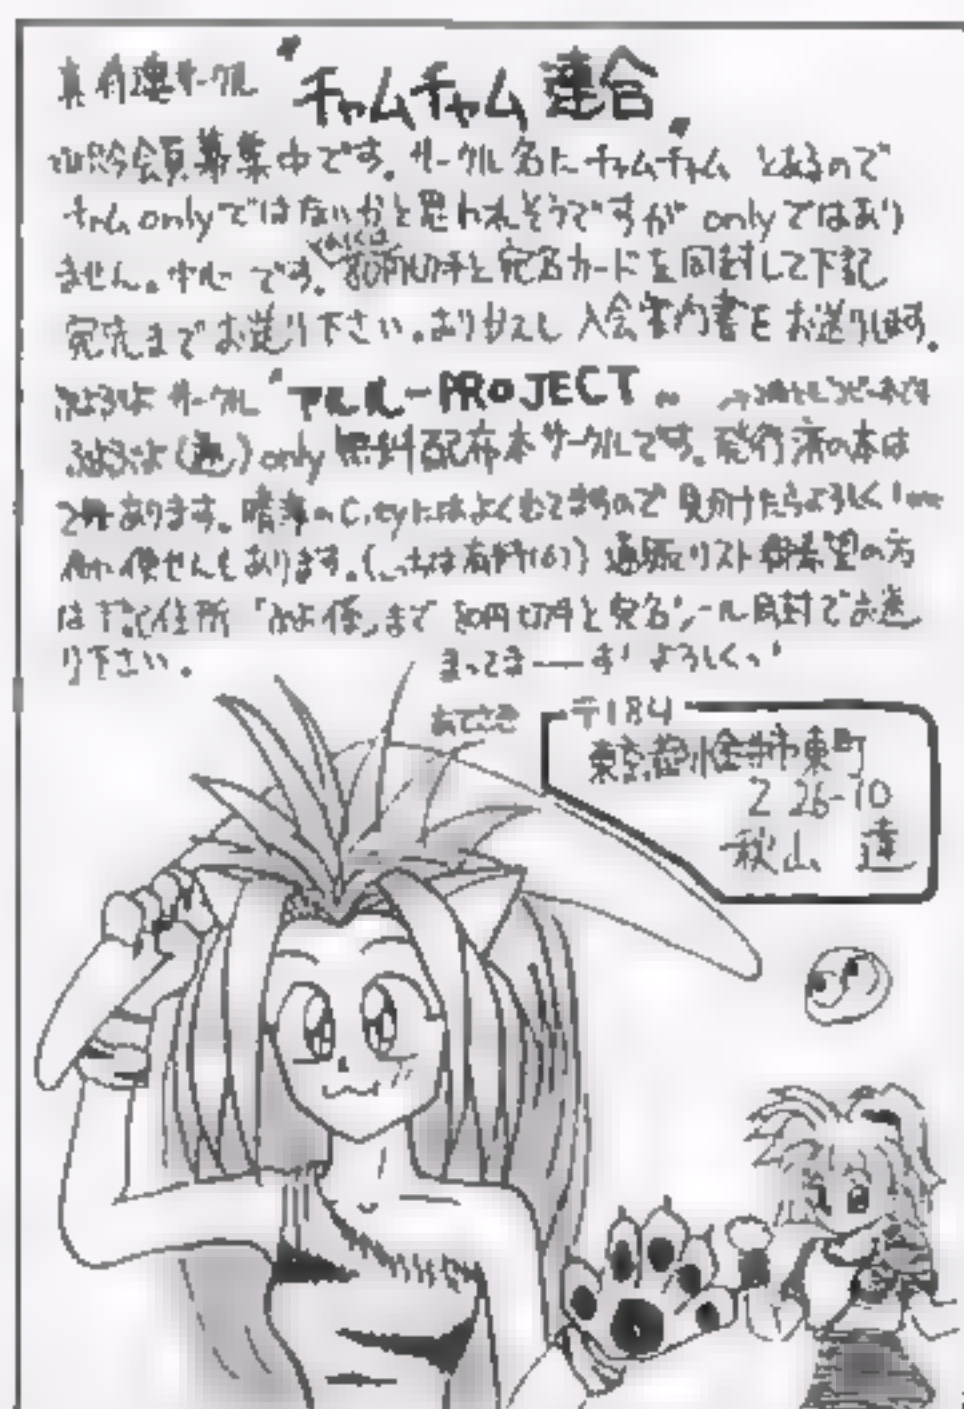 真侍魂サークル "チャムチャム連合"
会員募集中です。サークル名にチャムチャムとあるので
チャムonlyではないかと思われそうですがonlyではあり
ません。中心です。80円切手と宛名カードを同封して下記
宛先までお送り下さい。おりかえし入会案内書をお送りします。
ぷよぷよサークル "アルル-PROJECT"
ぷよぷよ(通)only無料配布本サークルです。発行済の本は
2冊あります。晴海のCityにはよくでてますので見かけたらよろしく!
便せんもあります。 通販リスト御希望の方
は下記住所「ぷよ係」まで80円切手と宛名シール同封でお送
り下さい。 まってまーーす!よろしくっ!
あてさき 〒184
東京都小金井市東町
2 26-10
秋山 達